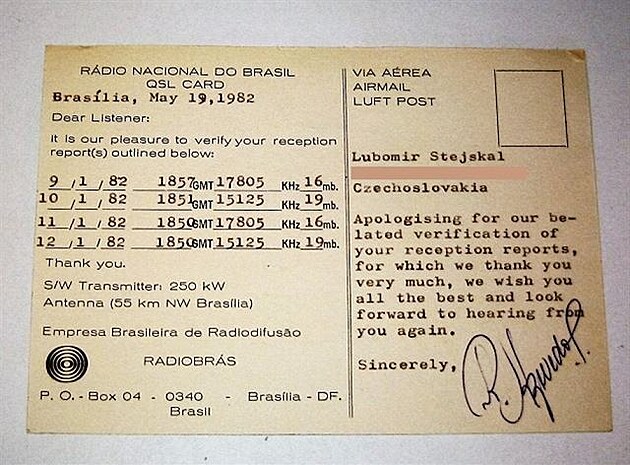 RÁDIO NACIONAL DO BRASIL
QSL CARD
Brasília, May 19,1982
Dear Listener:
It is our pleasure to verify your reception
report(s) outlined below:
9 /1 / 82 1857 GMT 17805 KHz 16 mb.
10 /1 / 82 1851 GMT 15125 KHz 19 mb.
11 /1 / 82 1850 GMT 17805 KHz 16 mb.
12 /1 / 82 1850 GMT 15125 KHz 19 mb.
Thank you.
S/W Transmitter: 250 kW
Antenna (55 km NW Brasília)
Empresa Brasileira de Radiodifusão
RADIOBRÁS
P. O. - Box 04 - 0340 - Brasília - DF.
Brasil
VIA AÉREA
AIRMAIL
LUFT POST
Lubomir Stejskal
Czechoslovakia
Apologising for our be-
lated verification of
your reception reports,
for which we thank you
very much, we wish you
all the best and look
forward to hearing from
you again.
Sincerely,